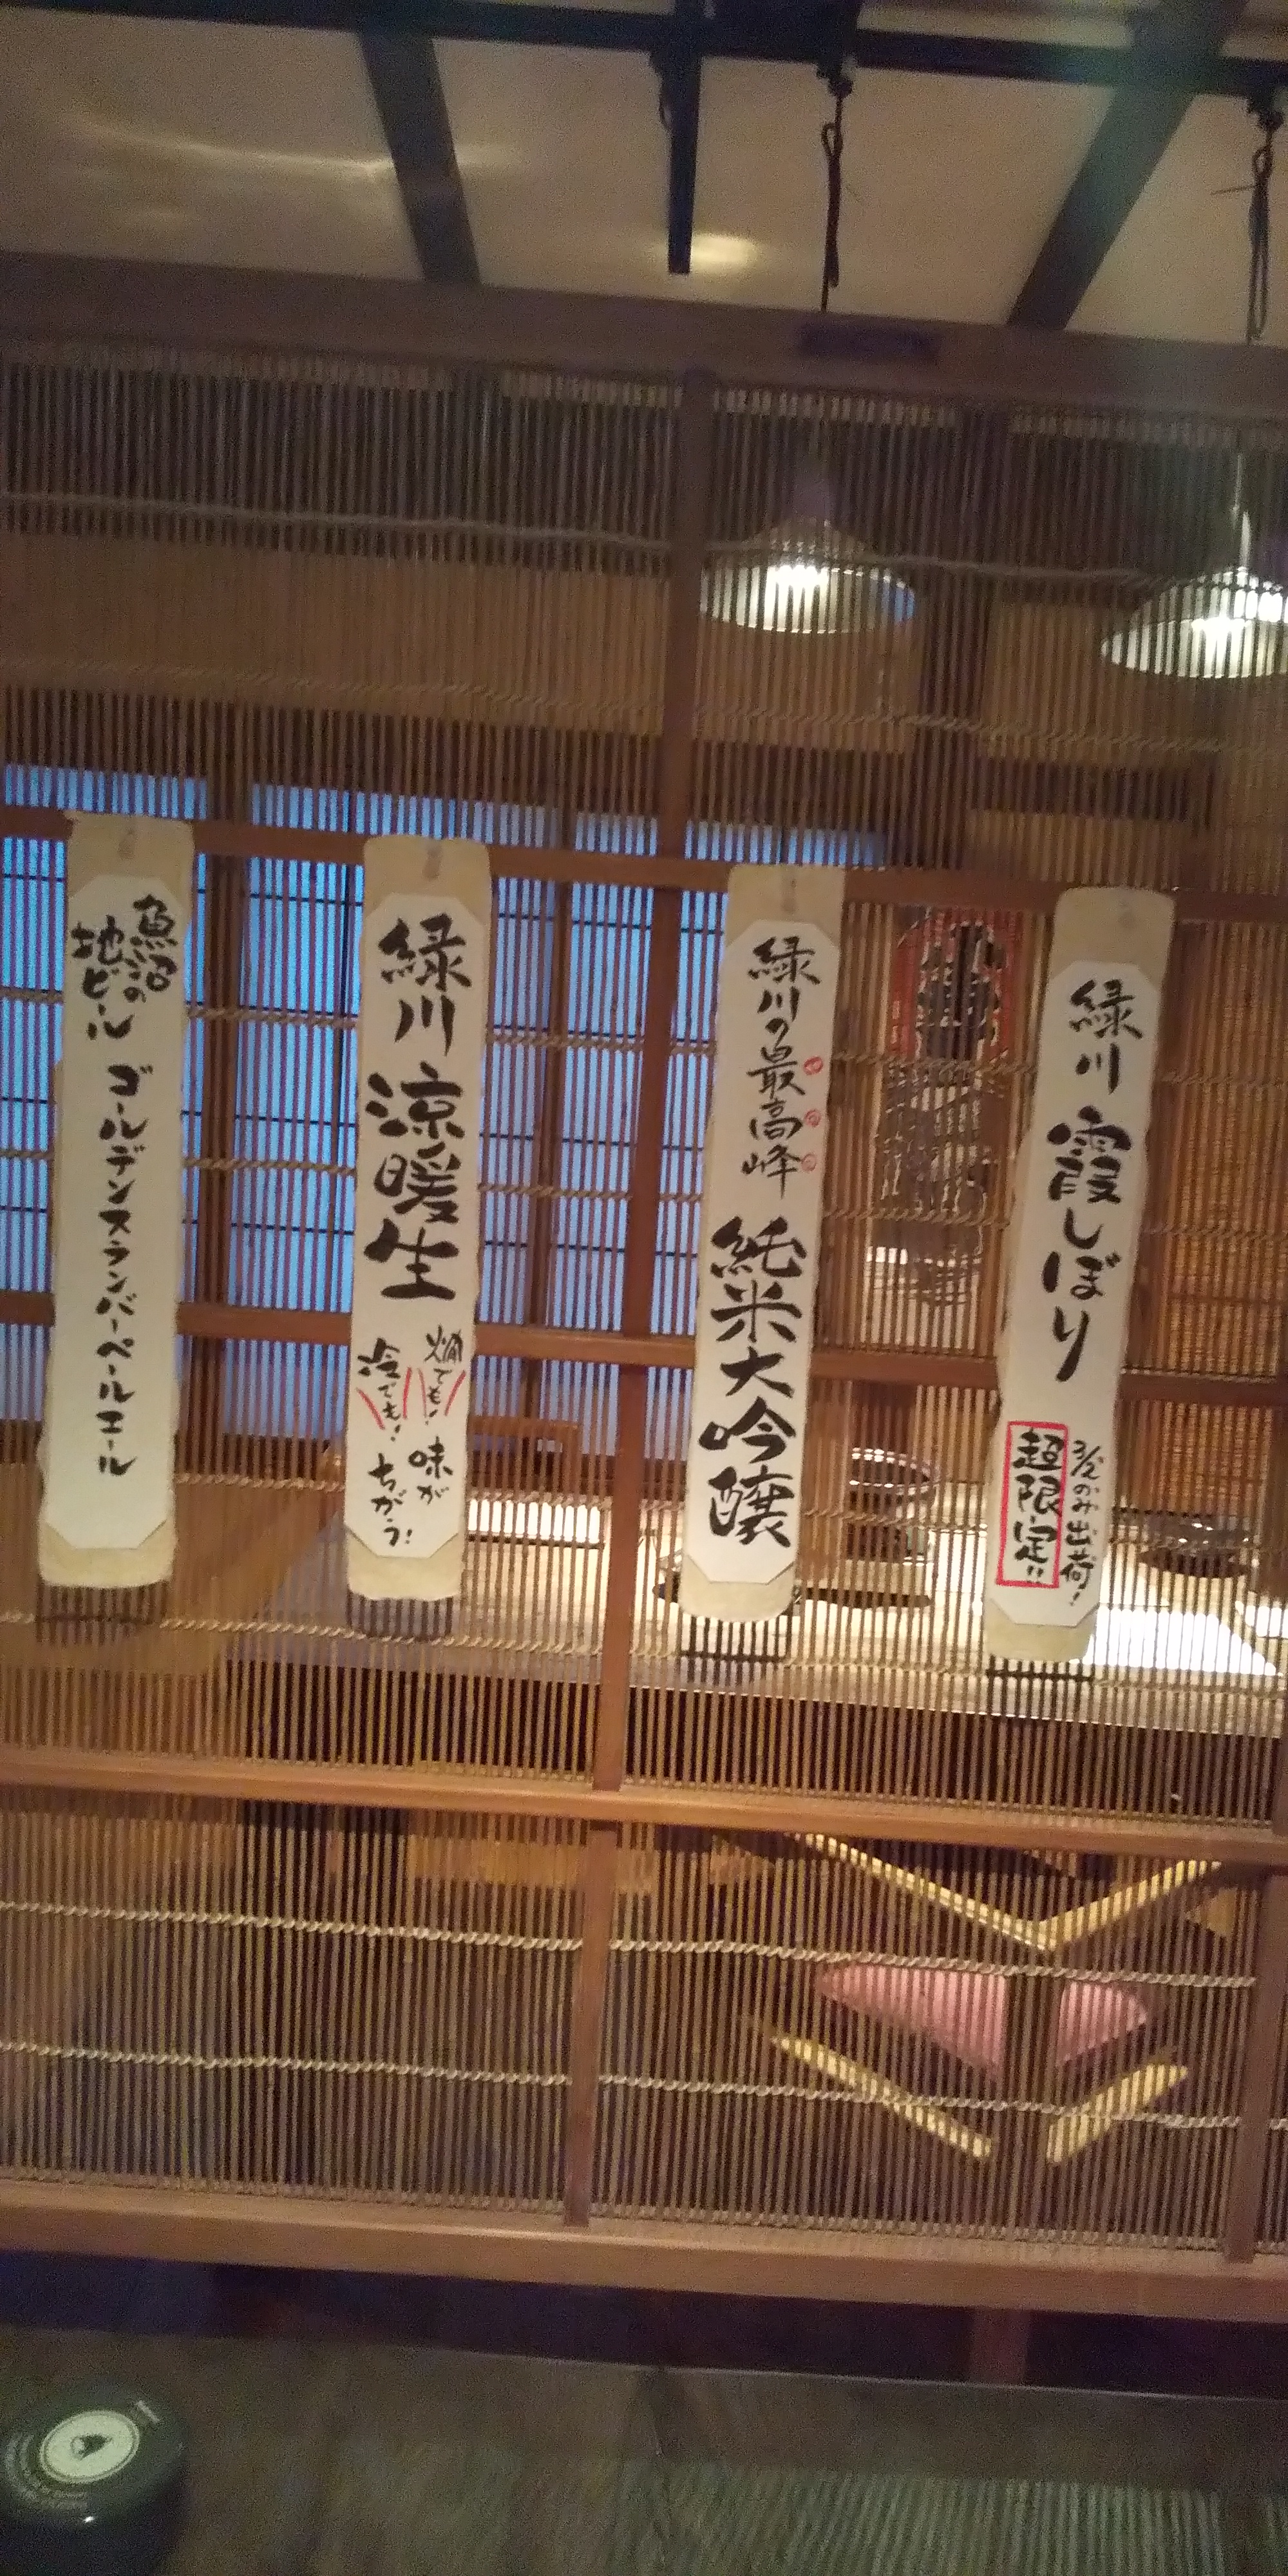 緑川 霞しぼり
3/2のみ出荷!
超限定!!
緑川の最高峰 純米大吟醸
緑川 涼暖生
燗でも! 味が
冷でも! ちがう!
魚沼の
地ビール ゴールデンスランバーペールエール